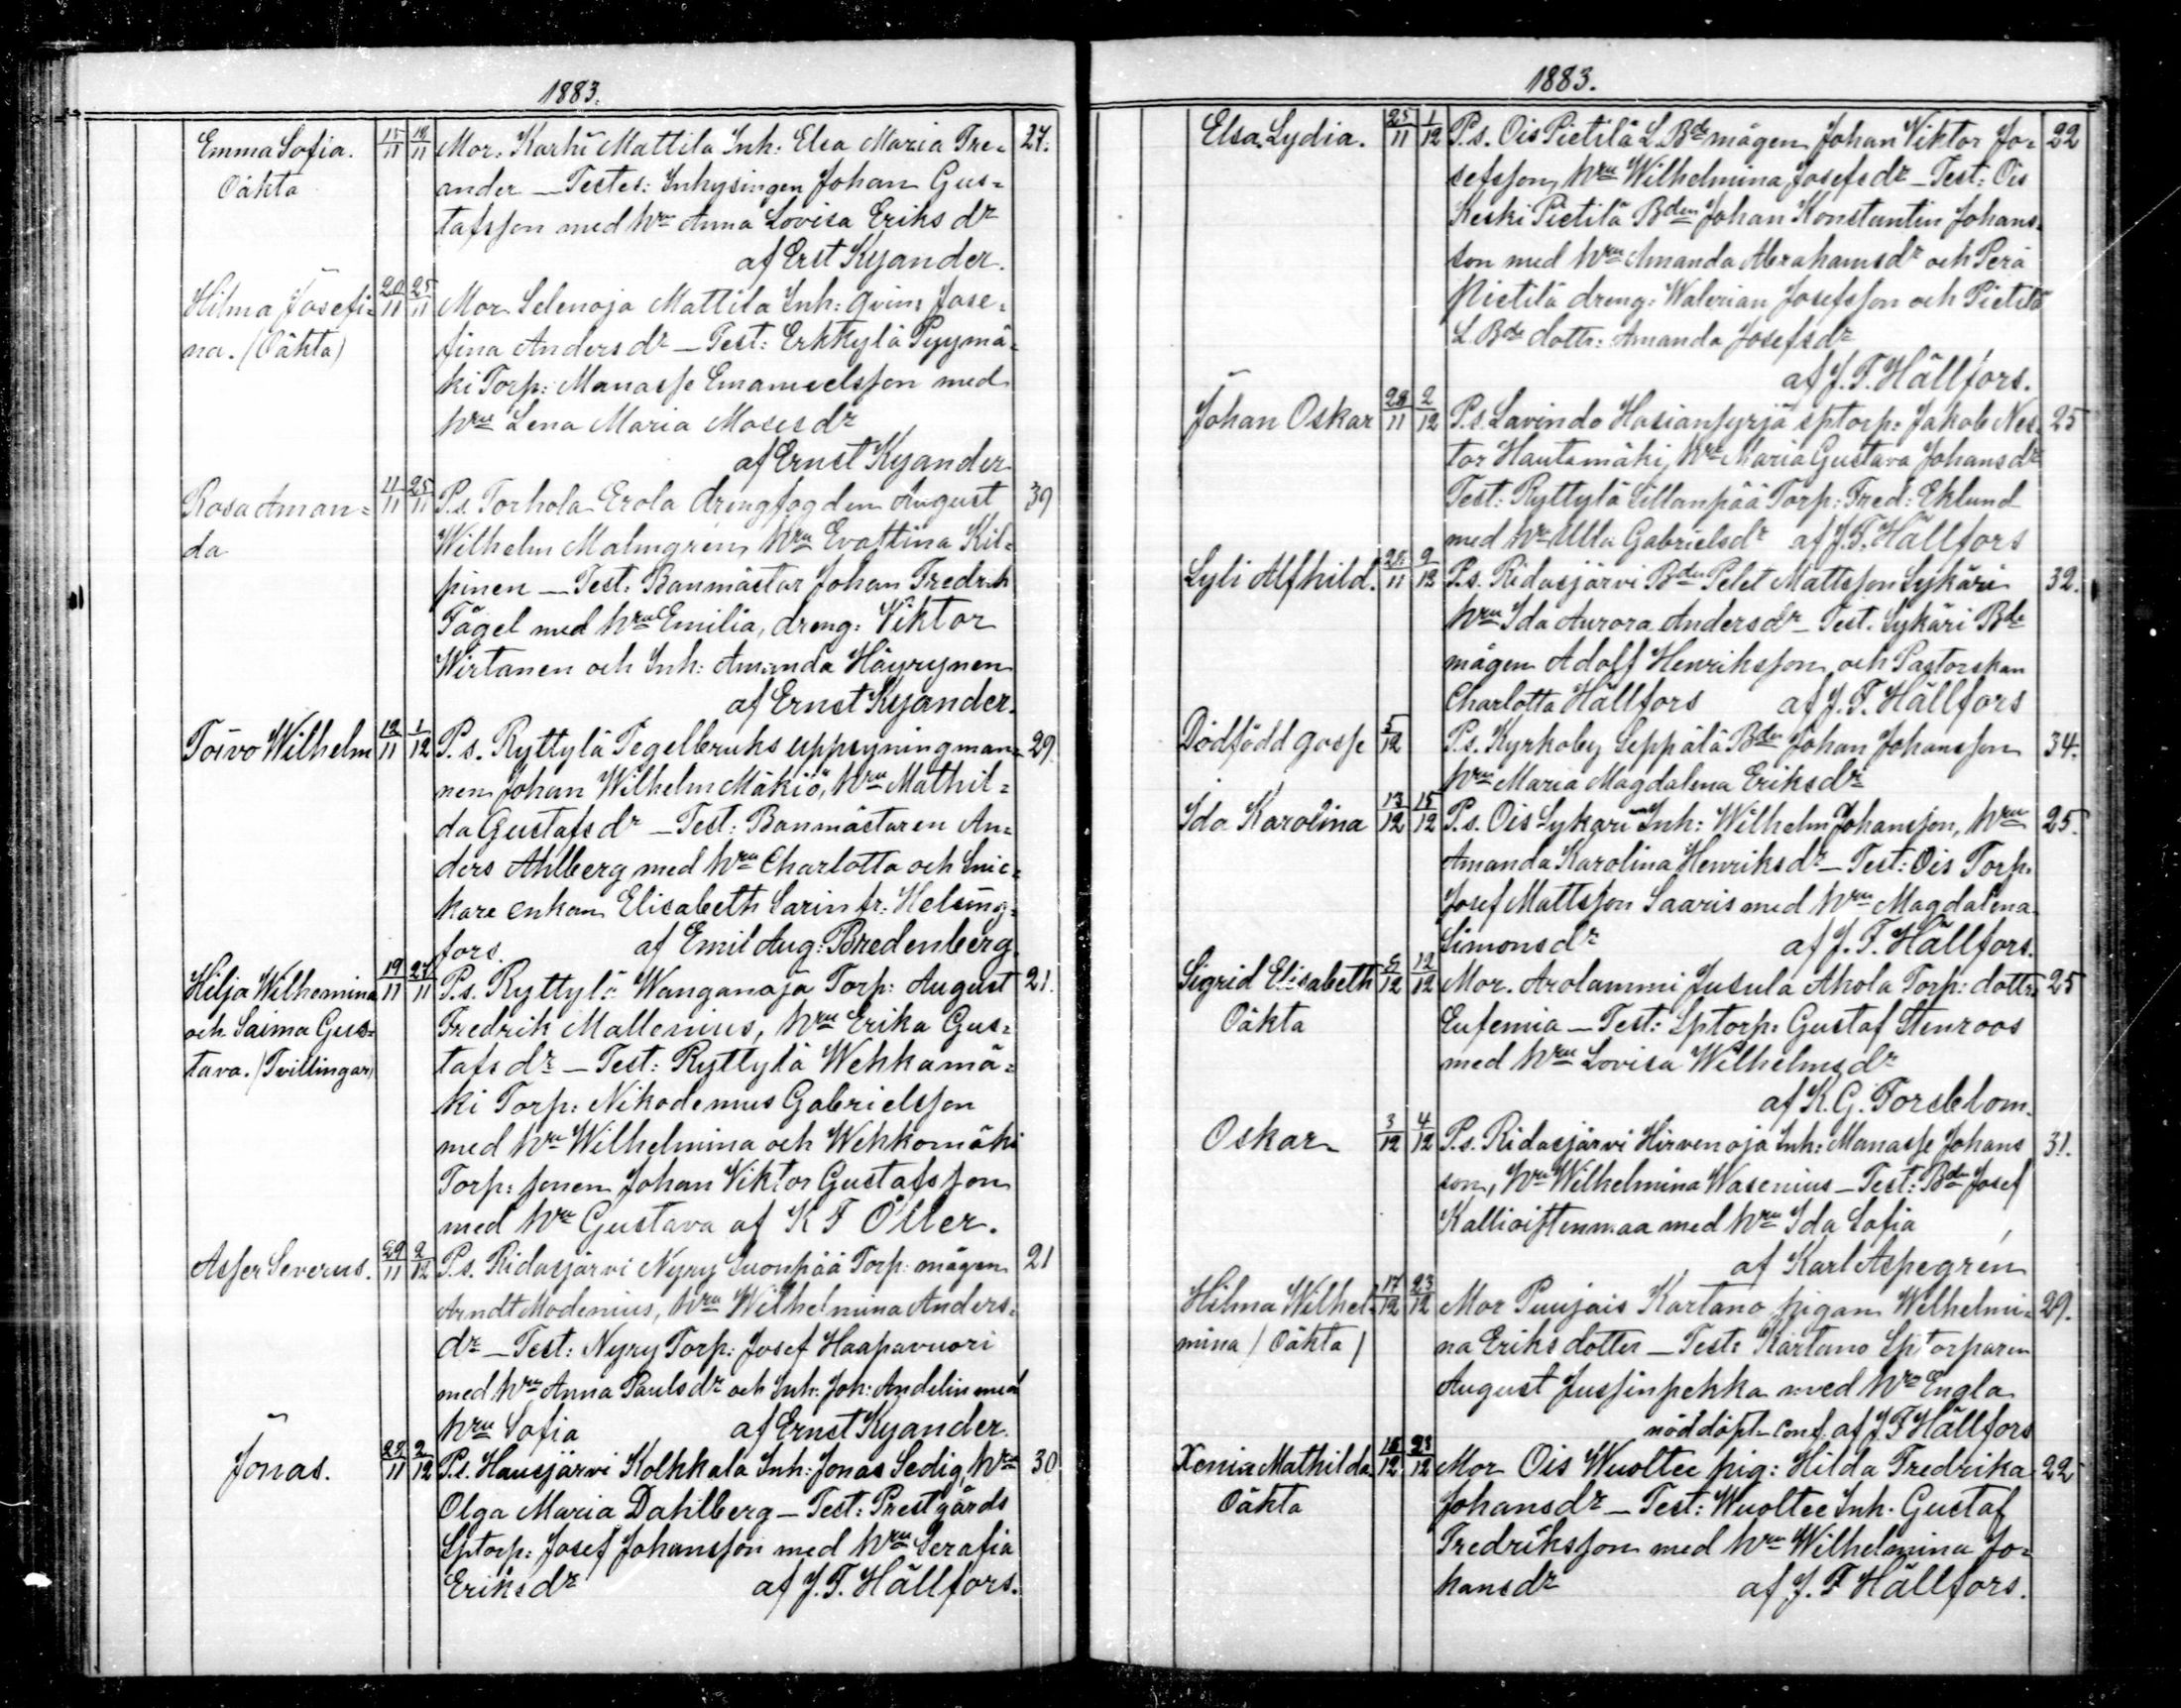 1883.
Emma Sofia. 15/11 18/11 Mor: Karhi Mattila Inh: Elsa Maria Tre= 27.
Oäkta ander — Testes: Inhysingen Johan Gus=
tafsson med hru Anna Lovisa Eriks dr
af Erst Kyander.
Hilma Josefi= 20/11 25/11 Mor Selenoja Mattila Inh: qvins Jose=
na. (Oäkta) fina Anders dr — Test: Erkkylä Pyymä=
ki Torp: Manasse Emanuelsson med
hru Lena Maria Moses dr
af Ernst Kyander
Rosa Aman= 11/11 25/11 P.s. Torhola Erola drengfogden August 39
da Wilhelm Malmgren, hru Evastina Kil=
pinen — Test: Banmästar Johan Fredrik
Fågel med hru Emilia, dreng: Viktor
Wirtanen och Inh: Amanda Häyrynen
af Ernst Kyander.
Toivo Wilhelm 12/11 1/12 P.s. Ryttylä Tegelbruks uppsyningman= 29.
nen Johan Wilhelm Mäkiö, hru Mathil=
da Gustafs dr — Test: Banmästaren An=
ders Ahlberg med hru Charlotta och Snic=
kare enkan Elisabeth Sarin fr. Helsing=
fors. af Emil Aug: Bredenberg.
Hilja Wilhemina 19/11 27/11 P.s. Ryttylä Wanganoja Torp: August 21.
och Saima Gus= Fredrik Mallenius, hru Erika Gus=
tava. (Tvillingar) tafs dr — Test: Ryttylä Wehkamä=
ki Torp: Nikodemus Gabrielsson
med hru Wilhelmina och Wehkomäki
Torp: sonen Johan Viktor Gustafsson
med hru Gustava af K F Öller.
Asser Severus. 29/11 2/12 P.s. Ridasjärvi Nyry Suonpää Torp: mågen 21
Arndt Modenius, hru Wilhelmina Anders=
dr — Test: Nyry Torp: Josef Haapavuori
med hru Anna Pauls dr och Inh: Joh: Andelin med
hru Sofia af Ernst Kyander.
Jonas. 28/11 2/12 P.s. Hausjärvi Kolkkala Inh: Jonas Sedig, hru 30
Olga Maria Dahlberg — Test: Prestgårds
Sptorp: Josef Johansson med hru Serafia
Eriks dr af J. F. Hällfors.
1883.
Elsa Lydia. 25/11 1/12 P.s. Ois Pietilä L. Bde mågen Johan Viktor Jo= 22
sefsson, hru Wilhelmina Josefs dr — Test: Ois
Keski Pietilä Bden Johan Konstantin Johans=
son med hru Amanda Abrahams dr och Perä
Pietilä dreng: Walerian Josefsson och Pietilä
L. Bde dottr: Amanda Josefs dr
af J. F. Hällfors.
Johan Oskar 28/11 2/12 P.s. Lavindo Hasiansyrjä sptorp: Jakob Nes= 25
tor Hautamäki, hru Maria Gustava Johans dr
Test: Ryttylä Sillanpää Torp: Fred: Eklund
med hru Ulla Gabriels dr af J. F. Hällfors
Lyli Alfhild. 9/12 P.s. Ridasjärvi Bden Pelet Mattsson Sykäri 32.
hru Ida Aurora Anders dr — Test. Sykäri Bde
mågen Adolf Henriksson och Pastorskan
Charlotta Hällfors af J. F. Hällfors
Dödfödd gosse 5/12 P.s. Kyrkoby Seppälä Bden Johan Johansson 34.
hru Maria Magdalena Eriks dr
Ida Karolina 13/12 15/12 P.s. Ois Sykari Inh: Wilhelm Johansson, hru 25.
Amanda Karolina Henriks dr — Test: Ois Torp:
Josef Mattsson Saaris med hru Magdalena
Simons dr af J. F. Hällfors.
Sigrid Elisabeth 12/12 Mor. Arolammi Jusula Ahola Torp: dottr: 25
Oäkta Eufemia — Test: Sptorp: Gustaf Stenroos
med hru Lovisa Wilhelms dr
af K. G. Forsblom.
Oskar 3/12 4/12 P.s. Ridasjärvi Hirvenoja Inh: Manasse Johans 31.
son, hru Wilhelmina Wasenius — Test: Bden Josef
Kallioistenmaa med hru Ida Sofia
af Karl Aspegrén
Hilma Wilhel= 17/12 23/12 Mor Puujais Kartano pigan Wilhelmi= 29.
mina (Oäkta) na Eriks dotter — Test: Kartano Sptorparen
August Jussinpekka med hru Engla
nöddöpt - conf. af J F Hällfors
Xenia Mathilda 18/12 23/12 Mor Ois Wuoltee pig: Hilda Fredrika 22
Oäkta Johans dr — Test: Wuoltee Inh: Gustaf
Fredriksson med hru Wilhelmina Jo=
hans dr af J. F Hällfors.